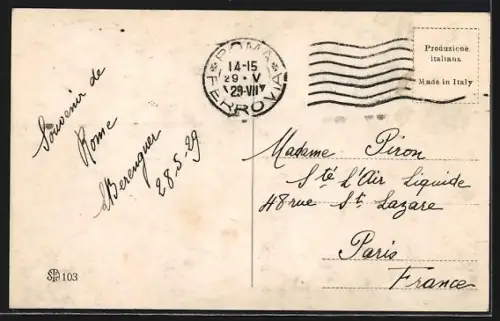 ROMA
FERROVIA
14-15
29·V
29·VII
Produzione
italiana
Made in Italy
Souvenir de
Rome
Berenguer
28.5.29
Madame Piron
Sté L'Air Liquide
48 rue St. Lazare
Paris
France
103